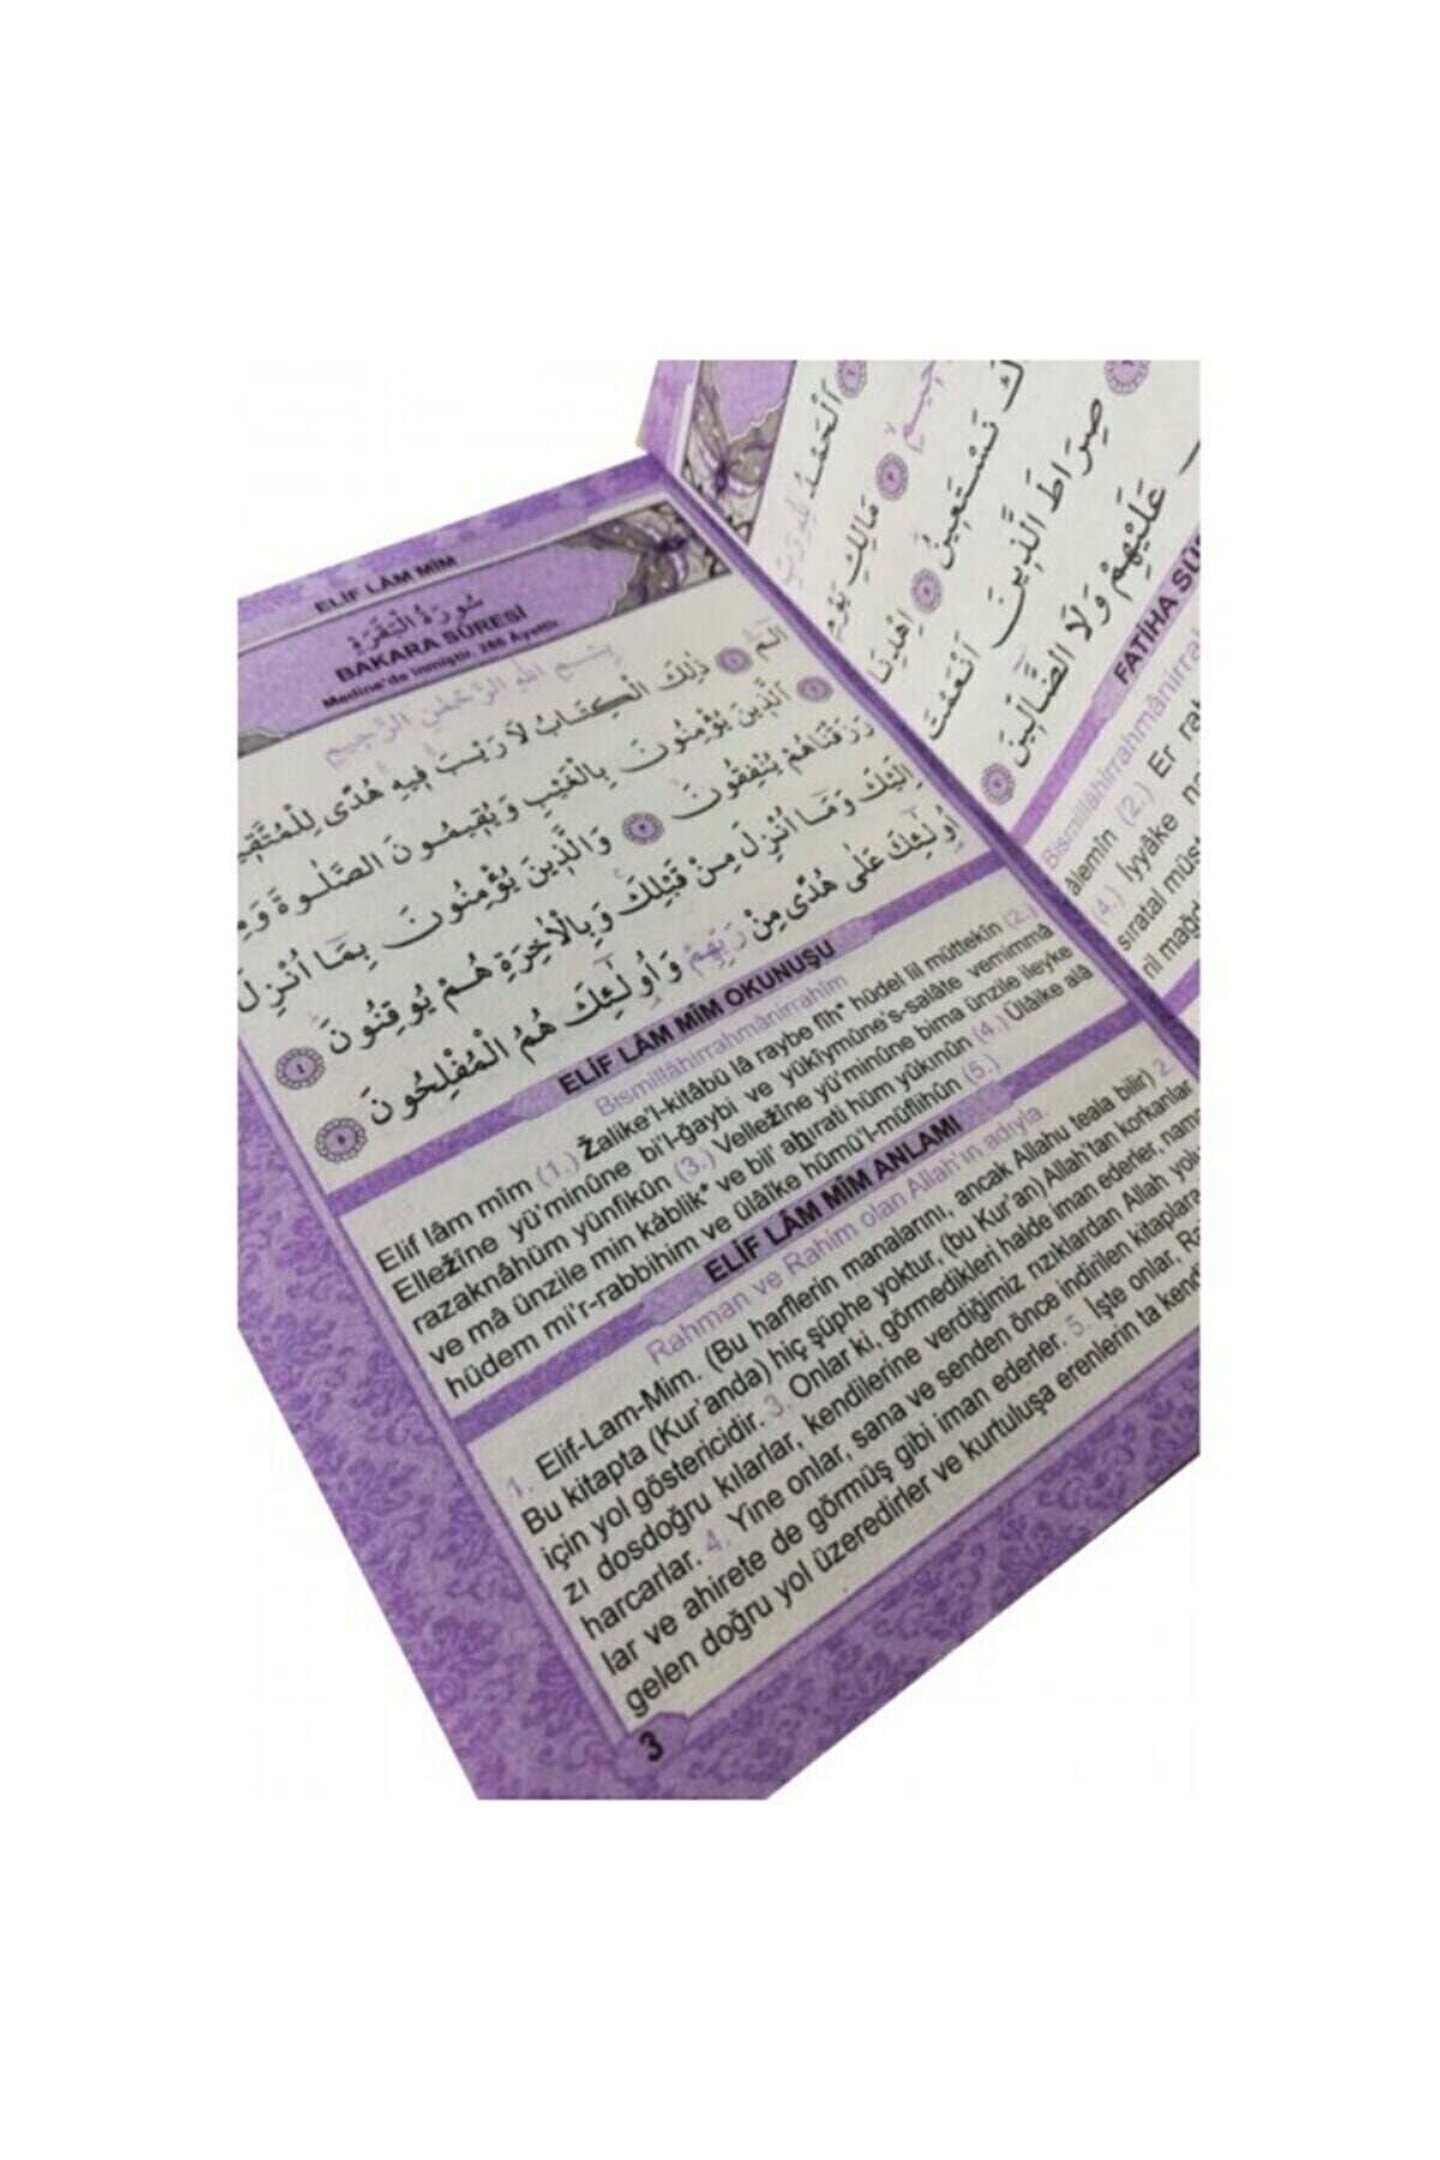 ELİF LÂM MÎM
سُورَةُ الْبَقَرَةِ
BAKARA SÛRESİ
Medine'de inmiştir. 286 Âyettir.
بِسْمِ اللهِ الرَّحْمٰنِ الرَّحِيمِ
الٓمٓ ١ ذٰلِكَ الْكِتَابُ لَا رَيْبَ فِيهِ هُدًى
٢ اَلَّذِينَ يُؤْمِنُونَ بِالْغَيْبِ وَيُقِيمُونَ الصَّلٰوةَ
رَزَقْنَاهُمْ يُنْفِقُونَ ٣ وَالَّذِينَ يُؤْمِنُونَ بِمَا اُنْزِلَ
اِلَيْكَ وَمَا اُنْزِلَ مِنْ قَبْلِكَ وَبِالْاٰخِرَةِ هُمْ يُوقِنُونَ ٤
اُولٰٓئِكَ عَلٰى هُدًى مِنْ رَبِّهِمْ وَاُولٰٓئِكَ هُمُ الْمُفْلِحُونَ ٥
ELİF LÂM MÎM OKUNUŞU
Bismillâhirrahmânirrahîm
Elif lâm mîm (1.) Žalike'l-kitâbü lâ raybe fîh* hüdel lil müttekîn (2.)
Elležîne yü'minûne bi'l-ğaybi ve yükîymûne's-salâte vemimmâ
razaknâhüm yünfikûn (3.) Velležîne yü'minûne bima ünzile ileyke
ve mâ ünzile min kâblik* ve bil' ahırati hüm yûkınûn (4.) Ülâike alâ
hüdem mi'r-rabbihim ve ülâike hümü'l-müflihûn (5.)
ELİF LÂM MÎM ANLAMI
Rahman ve Rahim olan Allah'ın adıyla.
1. Elif-Lam-Mim. (Bu harflerin manalarını, ancak Allahu teala bilir) 2
Bu kitapta (Kur'anda) hiç şüphe yoktur, (bu Kur'an) Allah'tan korkanlar
için yol göstericidir. 3. Onlar ki, görmedikleri halde iman ederler, nama
zı dosdoğru kılarlar, kendilerine verdiğimiz rızıklardan Allah yolu
harcarlar. 4. Yine onlar, sana ve senden önce indirilen kitaplara
lar ve ahirete de görmüş gibi iman ederler. 5. İşte onlar, Ra
gelen doğru yol üzeredirler ve kurtuluşa erenlerin ta kend
3
اَلْحَمْدُ
مَالِكِ
نَسْتَعِينُ ٥ اِهْدِنَا
صِرَاطَ الَّذِينَ اَنْعَمْتَ
عَلَيْهِمْ وَلَا الضَّالِّينَ ٧
FATİHA SÛ
Bismillâhirrahmânirra
âlemîn (2.) Er ra
(4.) İyyâke
sıratal müs
ril mağd